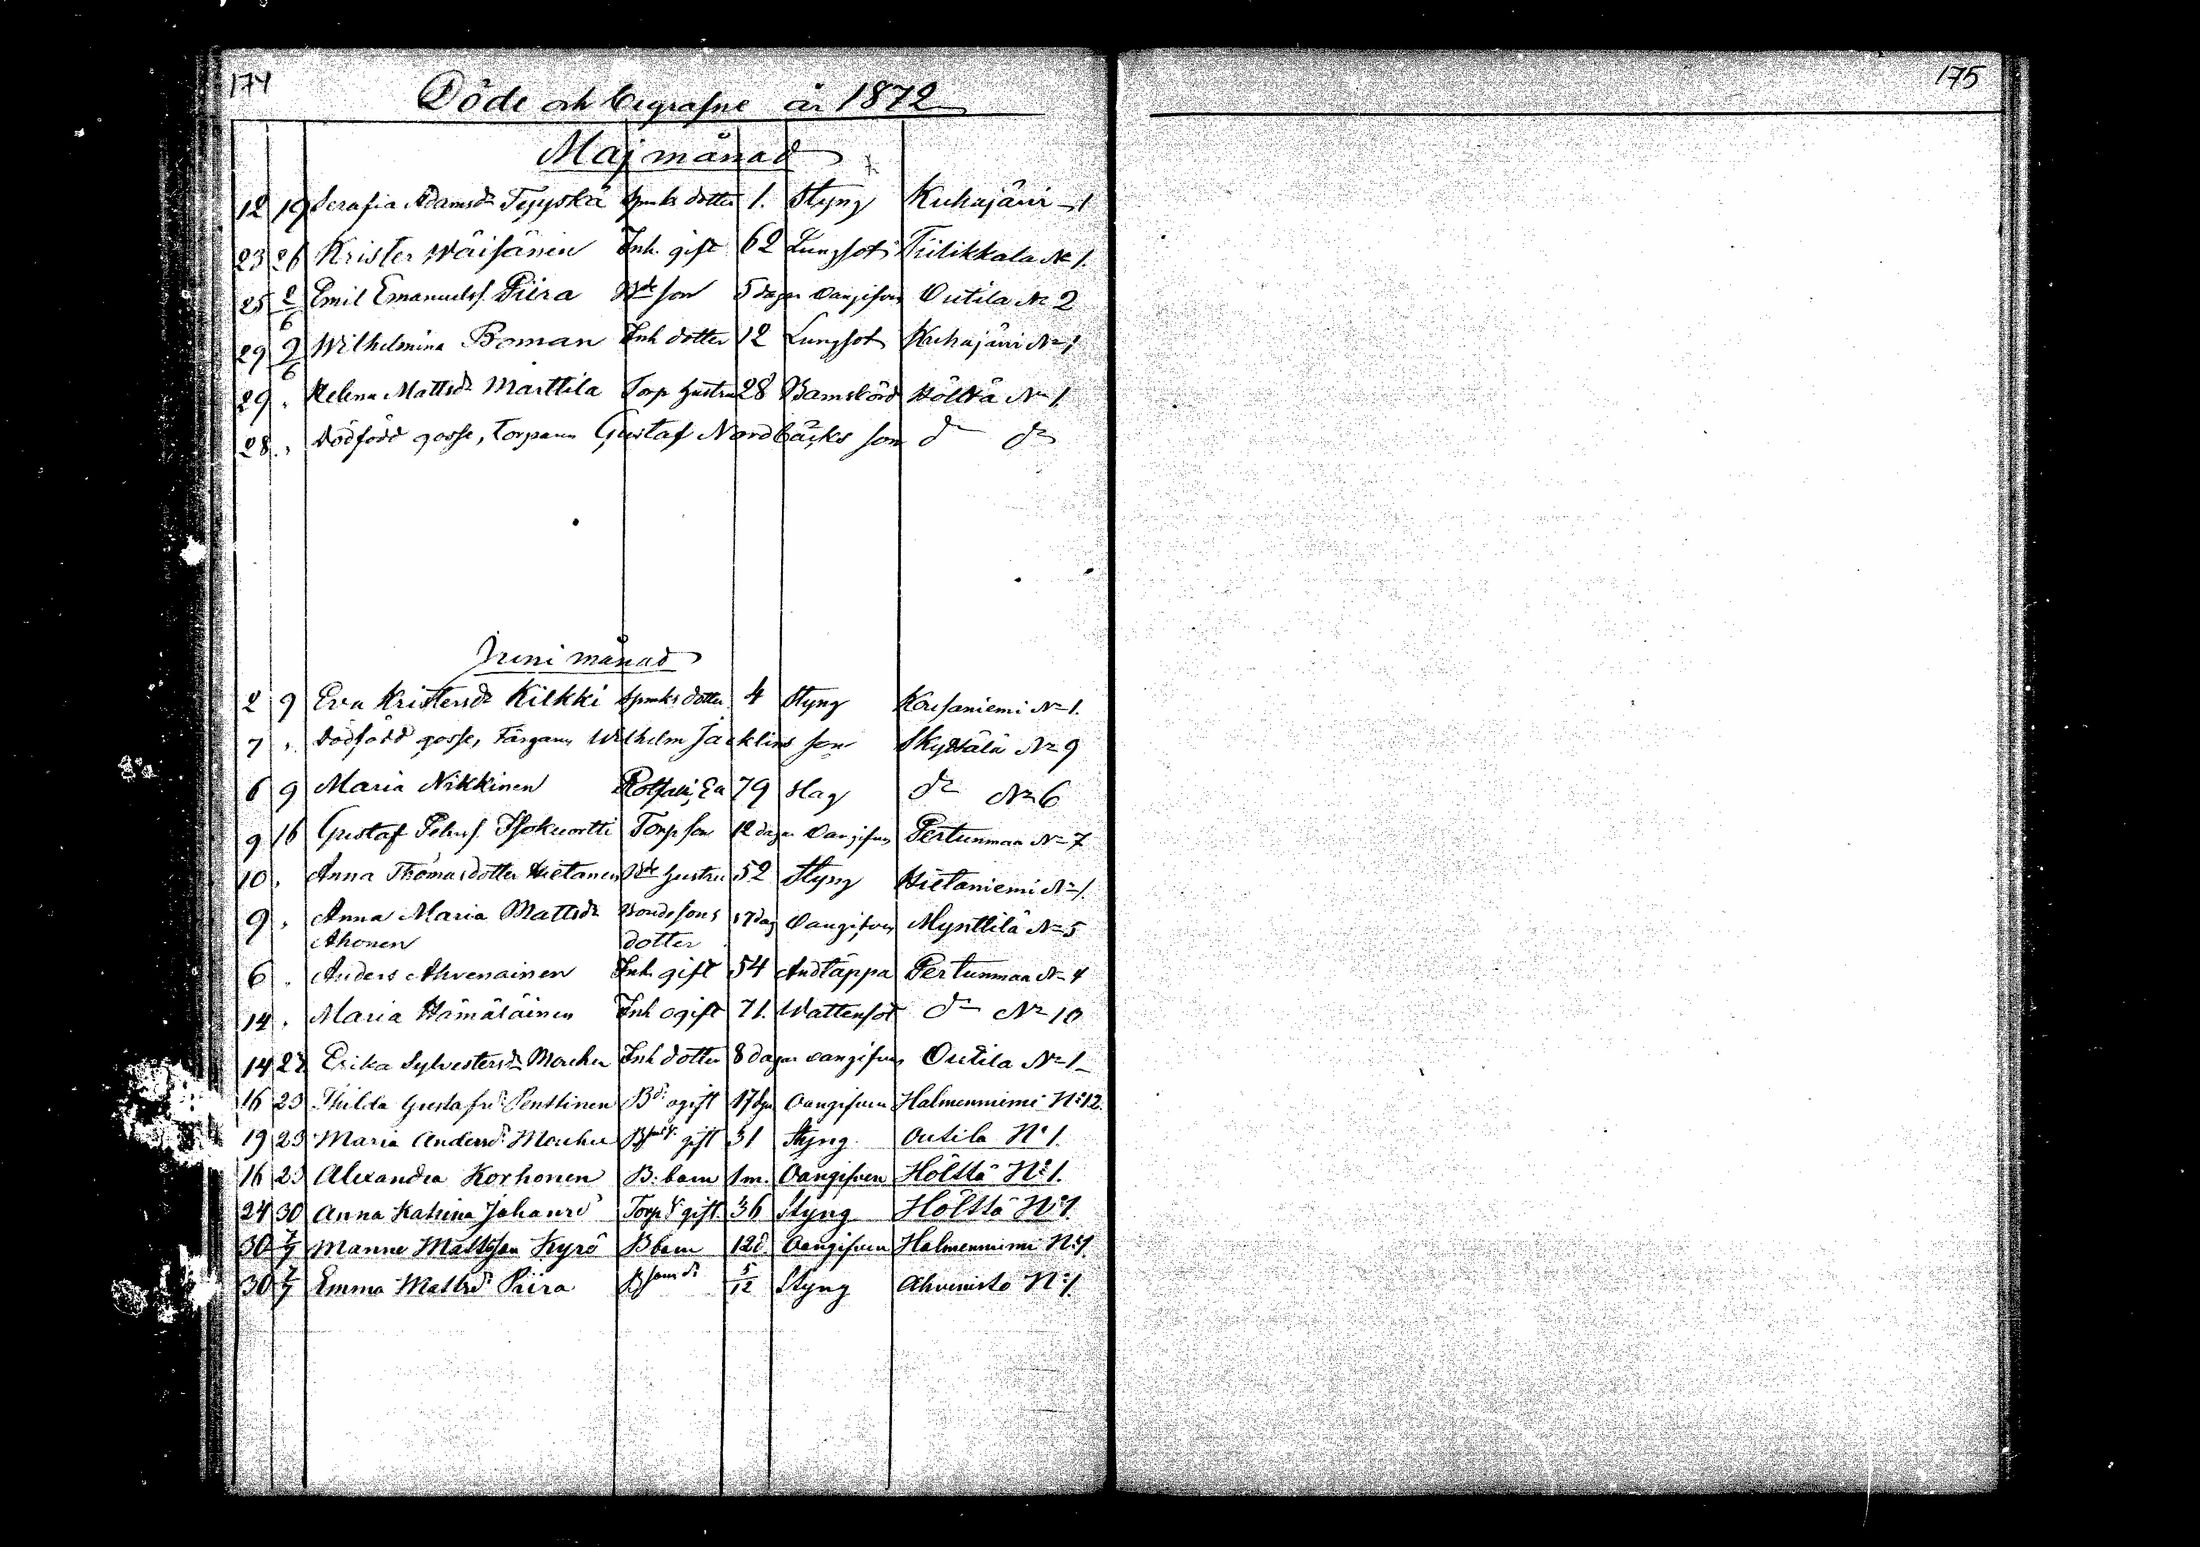 174
175
Döde och begrafne år 1872
Maj månad
12 19 Serafia Adamsdr Tyyskä Spmks dotter 1. Styng Kuhajärvi 1
23 26 Krister Wäisänen Inh. gift 62 Lungsot Tiilikkala No 1.
25 2/6 Emil Emanuelss. Piira Bde son 5 dagar Oangifven Outila No 2
29 2/6 Wilhelmina Boman Inh dotter 12 Lungsot Kuhajärvi No 1
29 " Helena Mattsdr Marttila Torp hustru 28 Barnsbörd Hölttä No 1.
28 " Dödfödd gosse, Torparen Gustaf Nordbäcks son do do
Juni månad
2 9 Eva Kristersdr Kilkki Spmks dotter 4 Styng Korsaniemi No 1.
7 " Dödfödd gosse, Färgaren Wilhelm Jacklins son Skyttälä No 9
6 9 Maria Nikkinen Rotfatt. Ea 79 Slag do No 6
9 16 Gustaf Petrss. Torp son 12 dagar Oangifven Pertunmaa No 7
10 " Anna Thomasdotter Hietanen Bde hustru 52 Styng Hietaniemi No 1.
9 " Anna Maria Mattsdr Bondesons 17 dag Oangifven Mynttilä No 5
Ahonen dotter
6 " Anders Ahvenainen Inh. gift 54 Andtäppa Pertunmaa No 4
14 " Maria Hämäläinen Inh ogift 71. Wattensot do No 10
14 23 Erika Sylvestersdr Inh dotter 8 dagar oangifven Outila No 1
16 23 Hilda Gustafsdr Penttinen Bdr ogift 17 dgr Oangifven Halmenniemi No 12.
19 23 Maria Andersdr gift 31 Styng. Outila No 1.
16 23 Alexandra Korhonen B. barn 1 m. Oangifven Hölttä No 1.
24 30 Anna Katrina Johansdr Torp gift 36 Styng Hölttä No 1.
30 7/7 Manne Mattsson Kyrö B barn 12 d Oangifven Halmenniemi No 1.
30 7/7 Emma Mattsdr Piira Bsons dr 5/12 Styng Ahvenisto No 1.